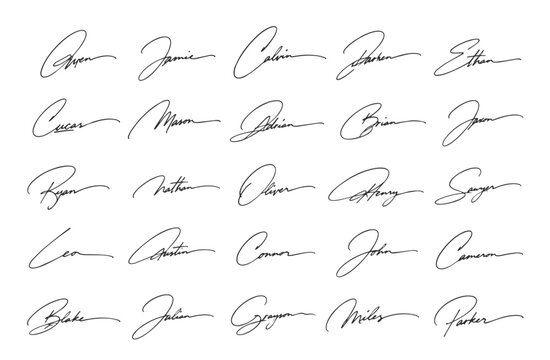 Owen Jamie Calvin Darren Ethan
Lucas Mason Adrian Brian Jaxon
Ryan Nathan Oliver Henry Sawyer
Leo Austin Connor John Cameron
Blake Julian Grayson Miles Parker